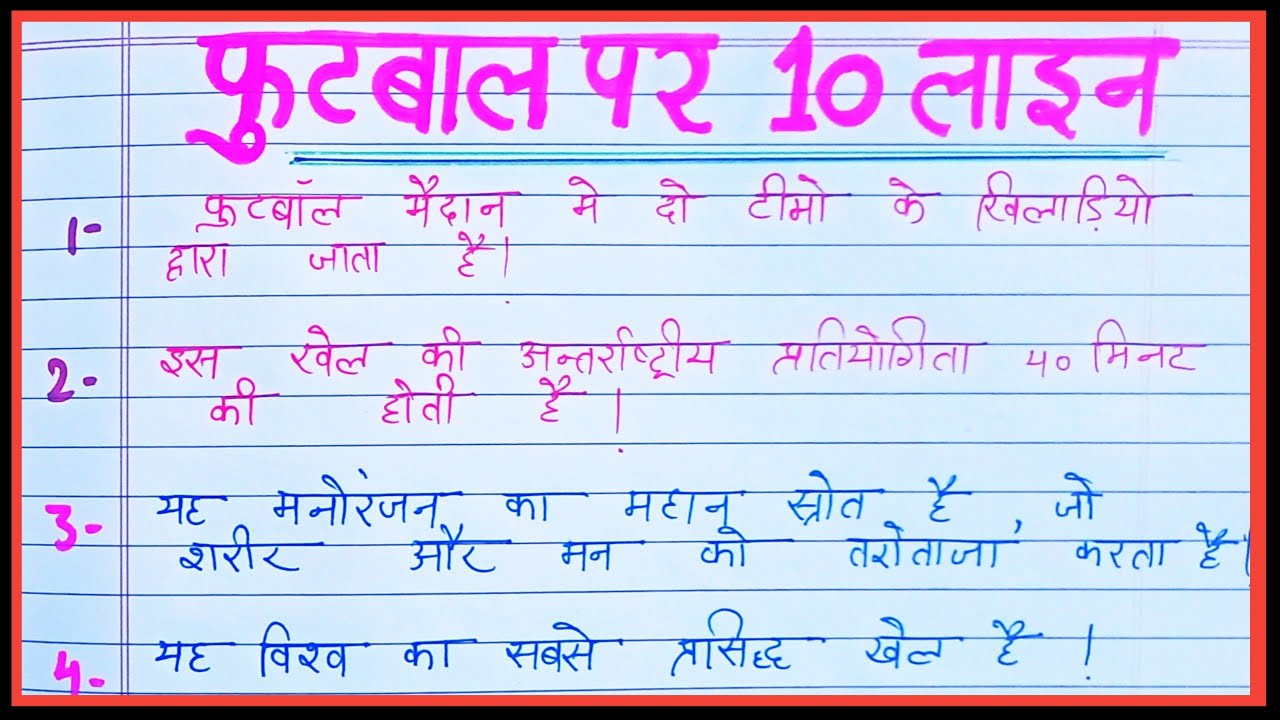 फुटबाल पर 10 लाइन
1- फुटबॉल मैदान मे दो टीमो के खिलाड़ियो
द्वारा जाता है।
2- इस खेल की अन्तर्राष्ट्रीय प्रतियोगिता 40 मिनट
की होती है।
3- यह मनोरंजन का महान् स्रोत है, जो
शरीर और मन को तरोताजा करता है।
4- यह विश्व का सबसे प्रसिद्ध खेल है।